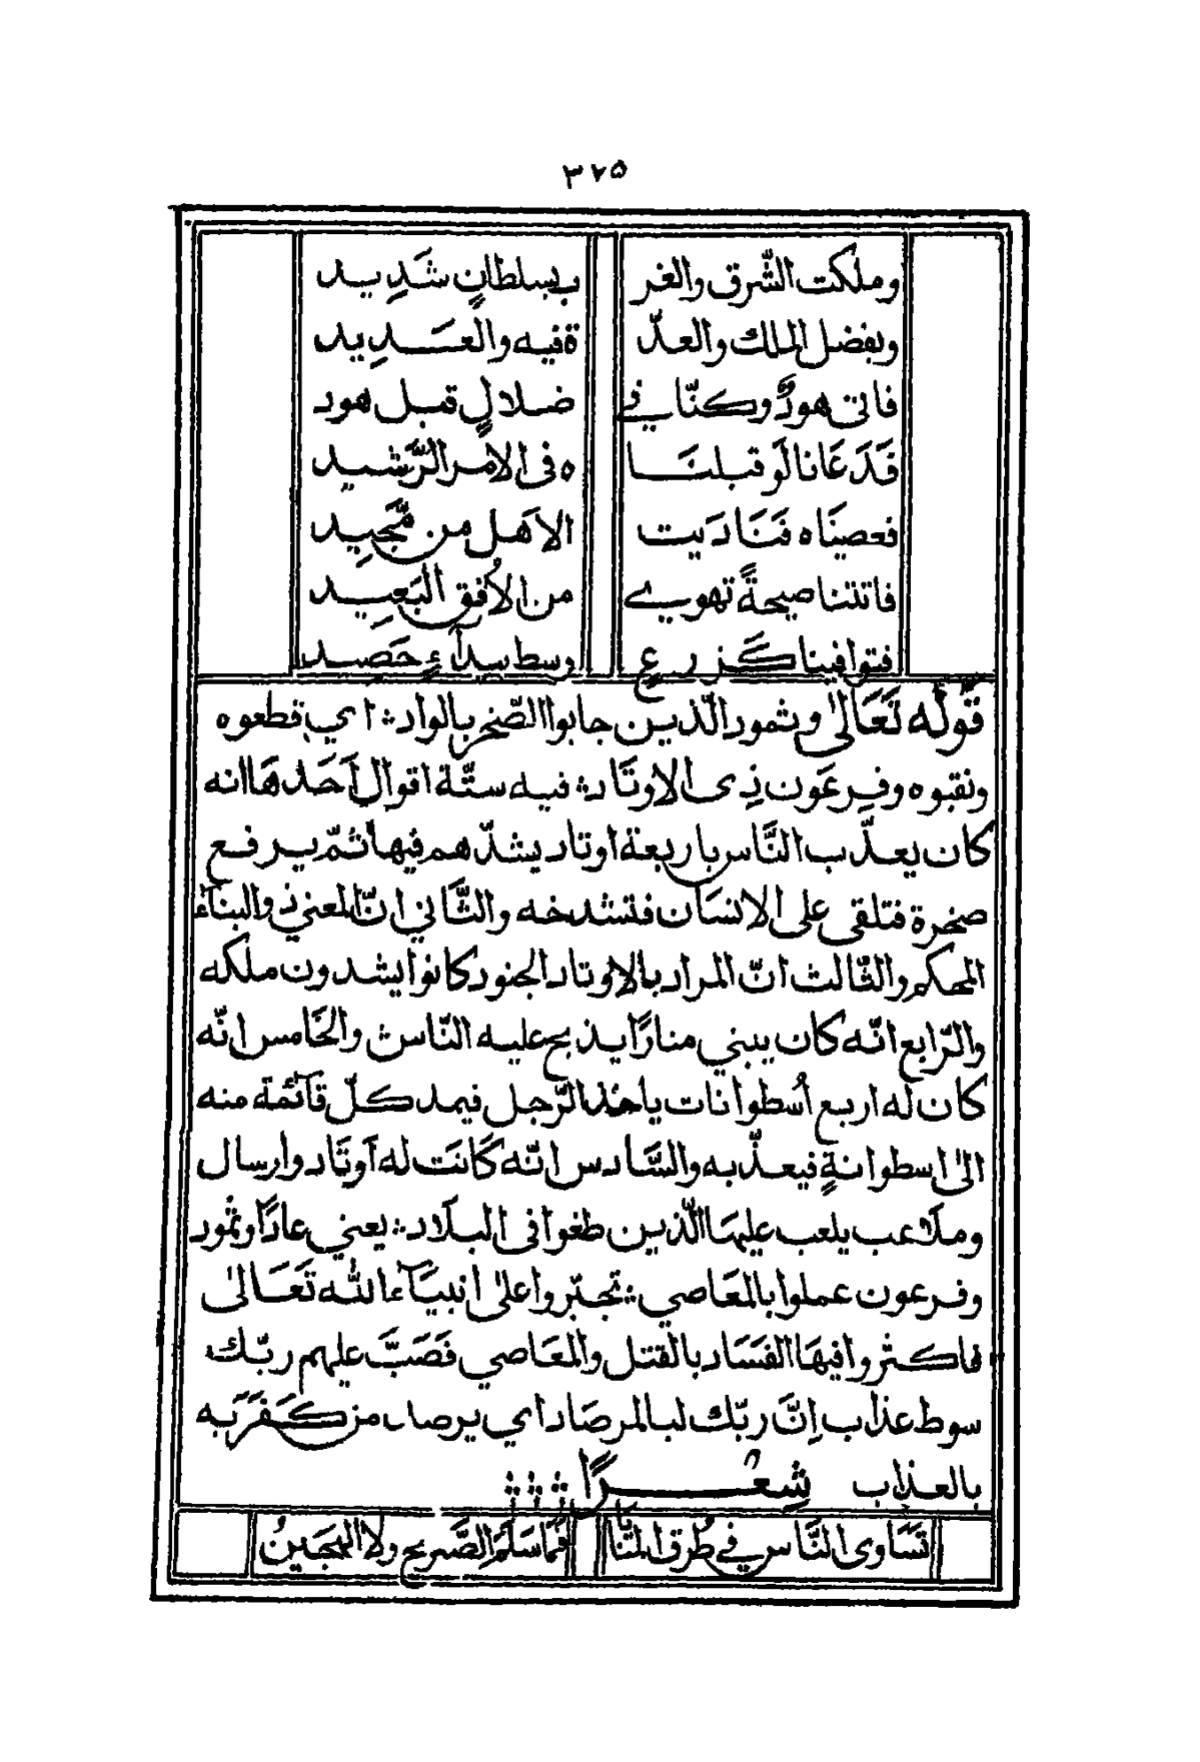 ٣٢٥
وملكت الشّرق والغر بسلطانٍ شَدِيد
وبفضل الملك والعدّ ة فيه والعَدِيد
فاتى هودٌ وكنّا في ضلالٍ قبل هود
فَدَعَانا لَو قبلنَا ه فى الامر الرَّشيد
فعصينَاه فنَنَادَيت الاهَل من مَّجِيد
فاتتنا صيحةً تهوي من الاُفق البَعِيد
فتوافينا كَزرعٍ وسط بيدآءٍ حَصِيد
قوله تَعَالىٰ وثمود الّذين جابوا الصّخر بالواد ؞ اي قطعوه
ونقبوه وفرعَون ذِى الاوتَاد ؞ فيه ستّة اقوال اَحَدهَا انه
كان يعذّب النَّاس باربعة اوتاد يشدّهم فيها ثمّ يرفع
صخرة فتلقى على الانسَان فتشدخه والثَّاني انّ المعني ذو البنآء
المحكم والثّالث انّ المراد بالاوتاد الجنود كانوا يشدون ملكه
والرّابع انّه كان يبني منارًا يذبح عليه النّاس ؞ والخَامس انّه
كان له اربع اُسطوانات ياخذ الرّجل فيمد كلّ قآئمة منه
الىٰ اسطوانةٍ فيعذّب به والسَّادس انّه كَانَت له اَوتَاد وارسال
وملاعب يلعب عليهَا الّذين طغوا فى البلَاد ؞ يعني عادًا وثمود
وفرعون عملوا بالمعَاصي ؞ تجبّروا علىٰ انبيَآء الله تَعَالىٰ
فاكثروا فيهَا الفسَاد بالقتل والمعَاصي فَصَبَّ عليهم ربّك
سوط عذاب اِنَّ ربّك لبالمرصَاد اي يرصد من كَفَرَ به
بالعذاب شِعْرًا ؞ ؞ ؞
تَسَاوى النَّاس في طُرق المنَايَا فمَا سَلَمَ الصَّريح ولَا الهَجِينُ